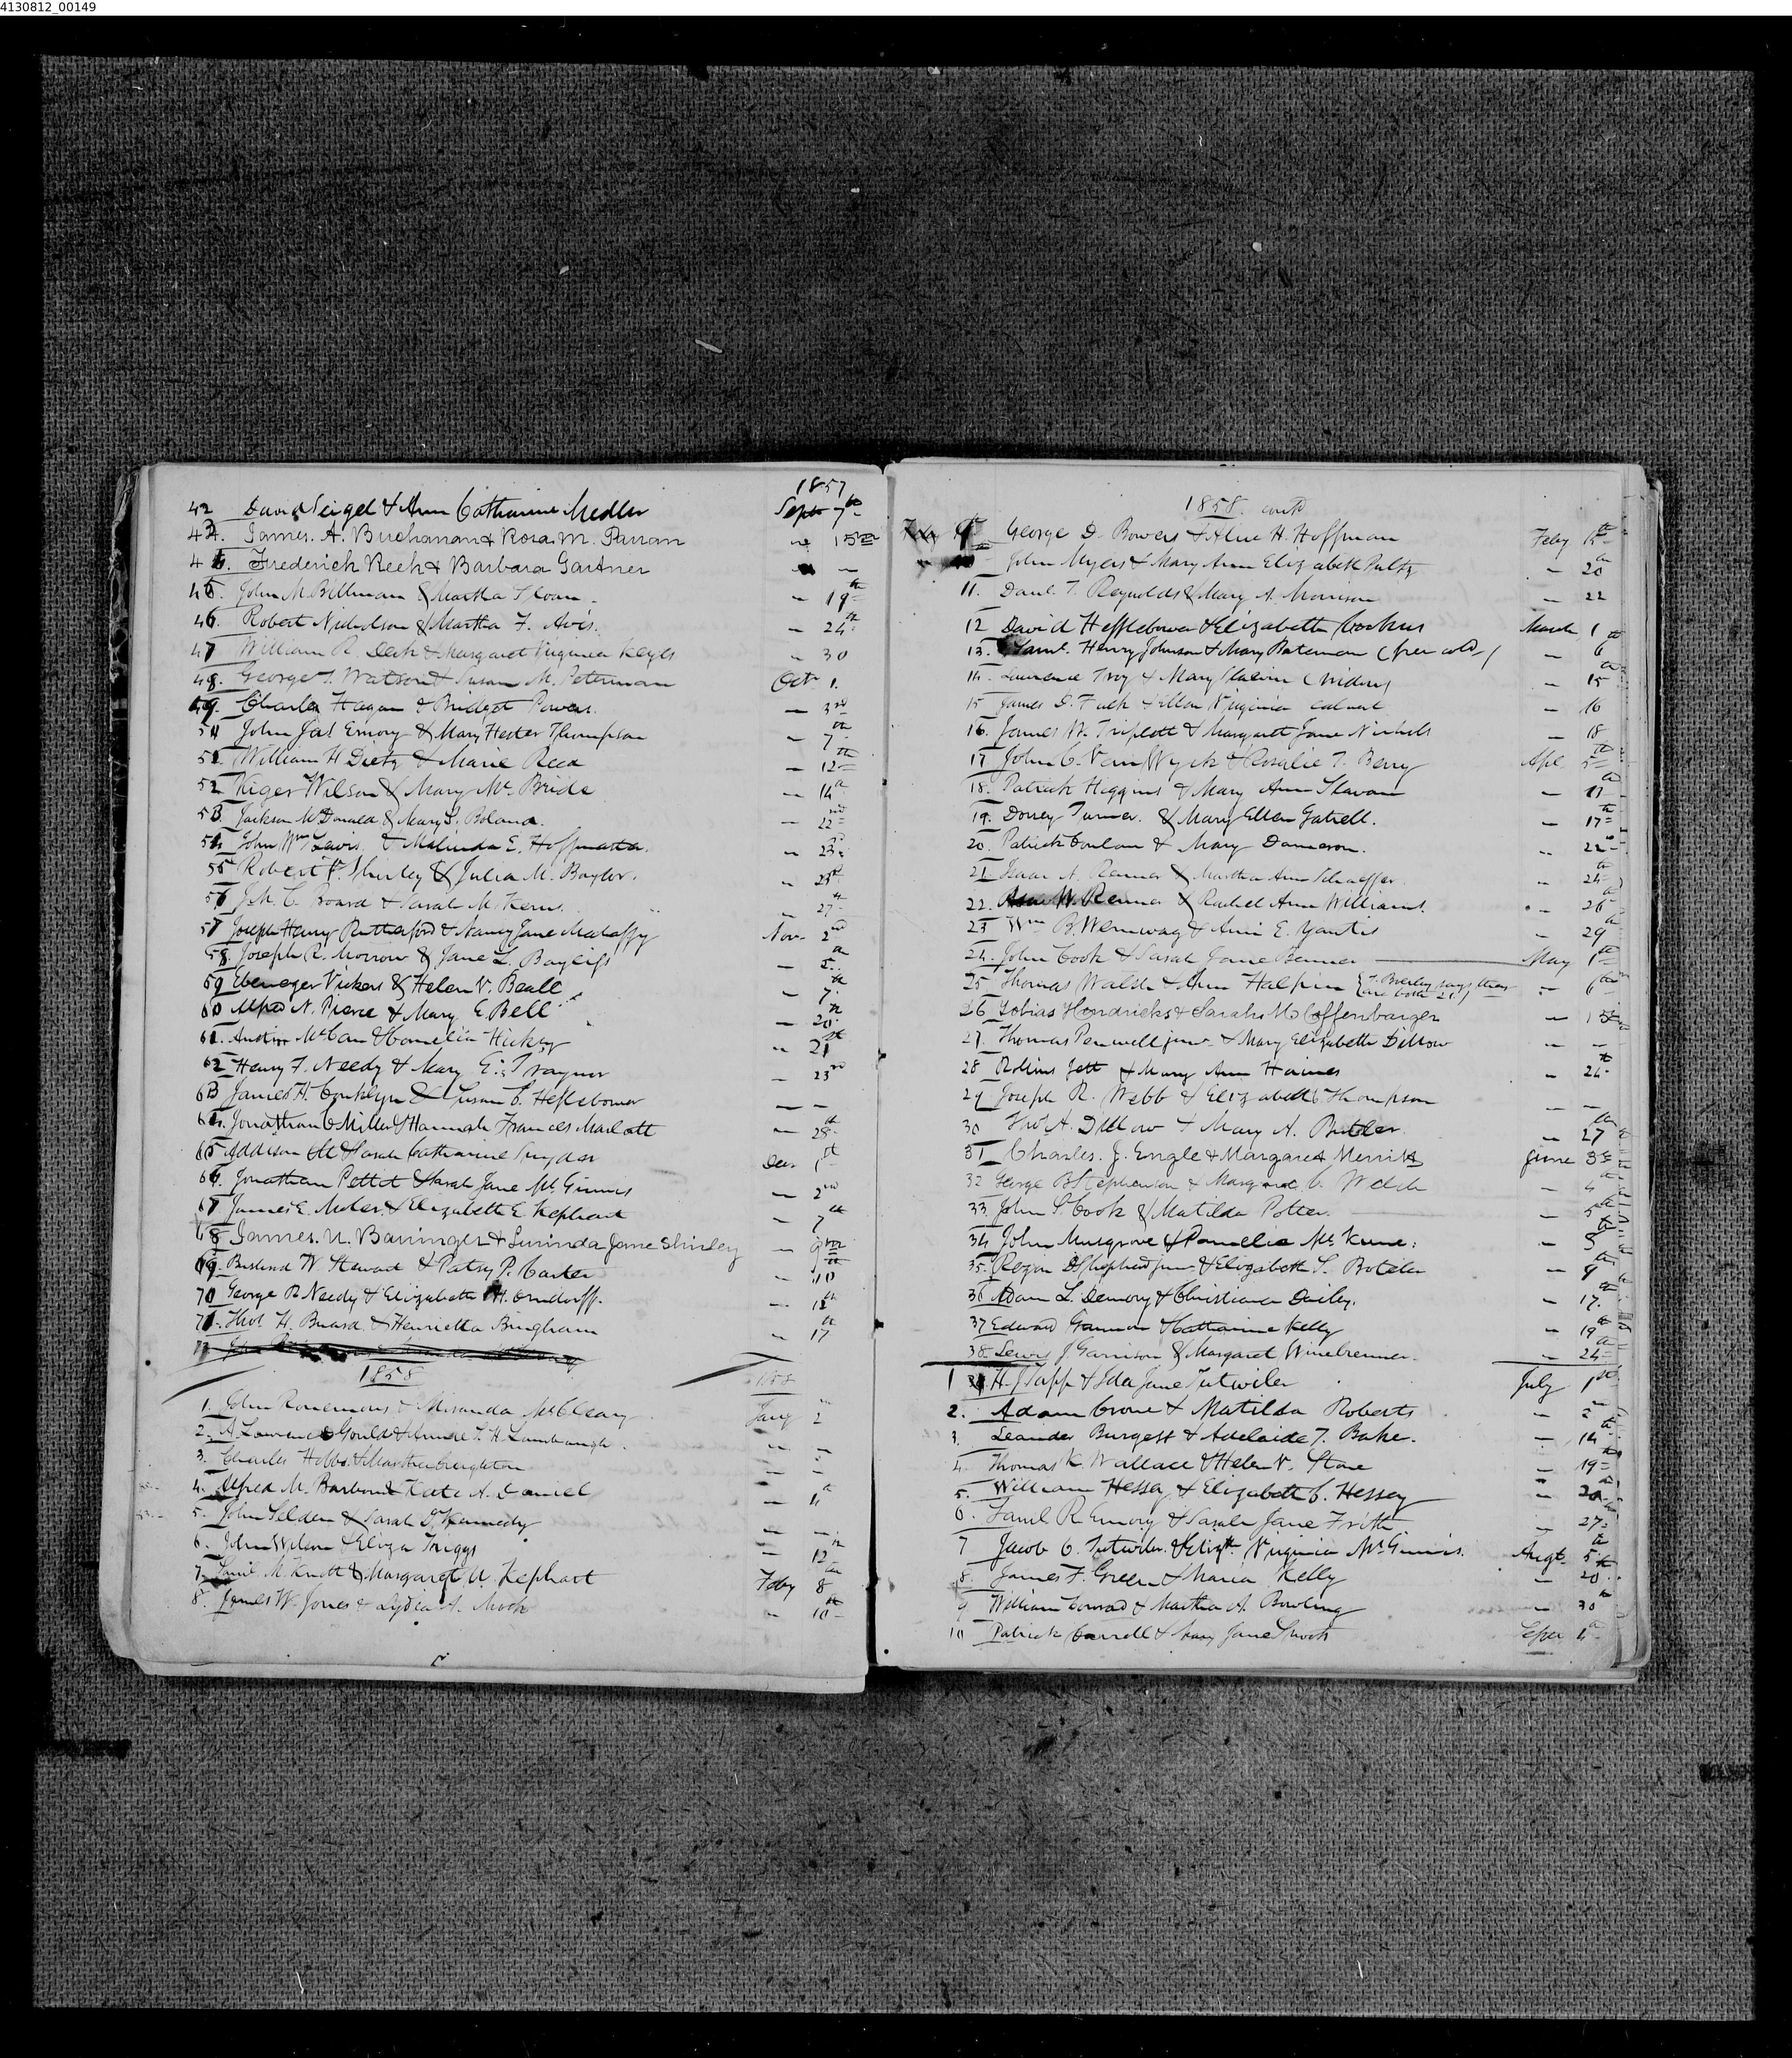 4130812_00149
1857
42 David Seigel & Ann Catharine Medler Sept 7th
43. James. A. Buchanan & Rosa. M. Parran 15th
44. Frederick Reek & Barbara Gartner — —
45. John M. Billman & Martha Sloan. — 19th
46. Robert Nicholson & Martha F. Avis. — 24th
47 William R. & Margaret Virginia Keyes — 30
48. George T. Watson & Susan M. Peterman Oct 1.
49. Charles Hagan & Bridget Powers. — 3rd
50 John Jas Emory & Mary Hester Thompson — 7th
51. William H Dietz & Marie Reed — 12th
52 Kiger Wilson & Mary Mc. Bride — 14th
53. Jackson McDonald & Mary S. Boland. — 22nd
54 John Wm Lewis & Malinda E. Hoffmaster. — 23rd
55 Robert V. Shirley & Julia M. Baylor. — 23rd
56 J. M. C. Board & Sarah M. Kerns. — 27th
57 Joseph Henry Rutherford & Nancy Jane Mahaffy Nov. 2nd
58. Joseph R. Morrow & Jane L. Bayliss — 5th
59 Ebenezer Vickers & Helen V. Beall — 7th
60 Alfred N. Pierce & Mary E. Bell — 20th
61. Austin McCan & Cornelia Hickey — 21st
62 Henry F. Needy & Mary E. Traynor — 23rd
63 James H. Conklyn & Susan C. Heflebower — —
64. Jonathan C Miller & Hannah Frances Marlatt — 28th
65 Addison & Sarah Catharine Snyder Dec. 1st
66. Jonathan Pettit & Sarah Jane McGinnis — 2nd
67 James E. Moler. & Elizabeth E. Kephart — 7th
68 James. N. Barringer & Lurinda Jane Shirley — 9th
69. W Steward & Patsy P. Carter — 10th
70 George R Needy & Elizabeth H. Orndorff. — 12th
71. Thos H. Buard & Henrietta Bingham — 17th
1858 1858
1. John Ronemous & Miranda McCleary Jany 2nd
2. A. Lawrence Gould & Annie T. H. — —
3. Charles Hobbs & Martha Creighton — —
4. Alfred M. Barbour & Kate A. Daniel — 11th
5. John Selden & Sarah D. Kennedy — —
6. John Wilson & Eliza Triggs — 12th
7. Saml M. Knott & Margaret N. Kephart Feby 8th
8. James W. Jones & Lydia A. Mock — 10th
1858. contd
9. George D. Bowers & Alice H. Hoffman Feby
John Myers & Mary Ann Elizabeth Pultz — 20th
11. Danl. T. Reynolds & Mary A. Morrison — 22
12 David Hefflebower & Elizabeth Cockus March 1
13. Saml. Henry Johnson & Mary Bateman (free cold) — 6th
14. Lawrence Troy & Mary Slavin (widow) — 15th
15 James D. Fuch & Ellen Virginia Calvert — 16
16. James W. Triplett & Margaret Jane Nichols — 18
17 John C. Van Wyck & Rosalie T. Berry Apl. 5th
18. Patrick Higgins & Mary Ann Slavan — 11th
19. Dorsey Turner. & Mary Ellen Gatrell. — 17th
20. Patrick Conlan & Mary Dameron. — 22nd
21 Isaac A. Renner & Martha Ann Schaeffer — 24th
22. W. Renner & Rachel Ann Williams. — 26th
23 Wm B. Wernwag & Ann E. Yantis — 29th
24. John Cook & Sarah Jane Benner May 1st
25 Thomas Walsh & Ann Halpin (T. Beeler says they are both 21.) — 6th
26 Tobias Hendricks & Sarah M. Coffenbarger — 13th
27. Thomas Penwell junr. & Mary Elizabeth Dillow — —
28 Rollins Jett & Mary Ann Haines — 24th
29 Joseph R. Webb & Elizabeth C. Thompson — —
30 Thos A. Dillow & Mary A. Butler — 27th
31 Charles. J. Engle & Margaret Merritt June 3rd
32 George B Stephenson & Margaret C. Welsh — 4
33 John S. Cook & Matilda Potter. — 5th
34 John Musgrove & Pamelia McKune. — 8th
35. Rezin D Shepherd junr & Elizabeth S. Boteler — 9th
36 Adam L. Demory & Christiana Dailey. — 17th
37 Edward Gannon & Catharine Kelly — 19th
38 Lewis J Garrison & Margaret Winebrenner. — 24th
1 H. J Tapp & Ida Jane Tutwiler July 1st
2. Adam Crone & Matilda Roberts — 2nd
3. Leander Burgess & Adelaide T. Bake. — 14th
4. Thomas K Wallace & Helen V. Stone — 19th
5. William Hessey & Elizabeth C. Hessey — 20th
6. Saml R Emory & Sarah Jane Frith — 27th
7 Jacob C. Tutwiler & Elizth. Virginia McGinnis. Augt. 5th
8. James F. Green & Maria Kelly — 20th
9 William Conrad & Martha A. Bowling — 30th
10 Patrick Carroll & Mary Jane Smoot Sepr